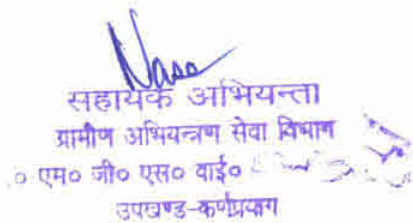 सहायक अभियन्ता
ग्रामीण अभियन्त्रण सेवा विभाग
०एम० जी० एस० वाई०
उपखण्ड-कर्णप्रयाग